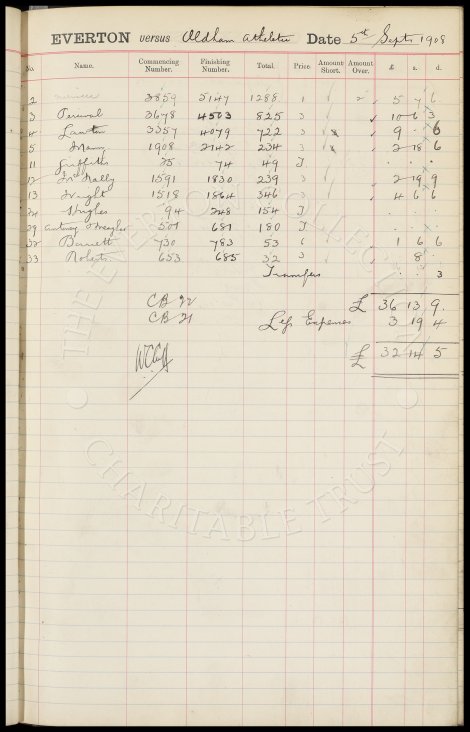 EVERTON versus Oldham Athletic Date 5th Sept 1908
No. Name. Commencing Number. Finishing Number. Total. Price Amount Short. Amount Over. £ s. d.
2 3859 5147 1288 1 2 5 7 6
3 Percival 3678 4503 825 3 10 6 3
4 Lawton 3357 4079 722 3 9 . 6
5 1908 2142 234 3 2 18 6
11 Griffiths 25 74 49 T . . .
12 McNally 1591 1830 239 3 2 19 9
13 Wright 1518 1864 346 3 4 6 6
24 Hughes 94 248 154 T . . .
29 501 681 180 T . . .
32 Barnett 730 783 53 6 1 6 6
33 Roberts 653 685 32 3 . 8 .
Transfers . . 3
CB 22 £ 36 13 9.
CB 21 Less Expenses 3 19 4
£ 32 14 5
THE EVERTON COLLECTION
CHARITABLE TRUST